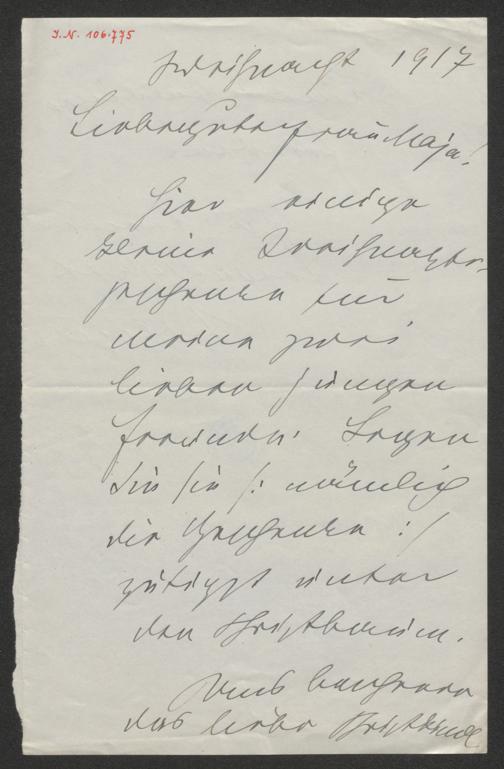 I.N. 106.775
Weihnacht 1917
Liebe gute Frau Maja!
Hier einige
kleine Weihnachts-
geschenke für
meine zwei
lieben jungen
Freunde. Legen
Sie sie /: nämlich
die Geschenke :/
gütigst unter
den Christbaum.
das liebe Christkindl